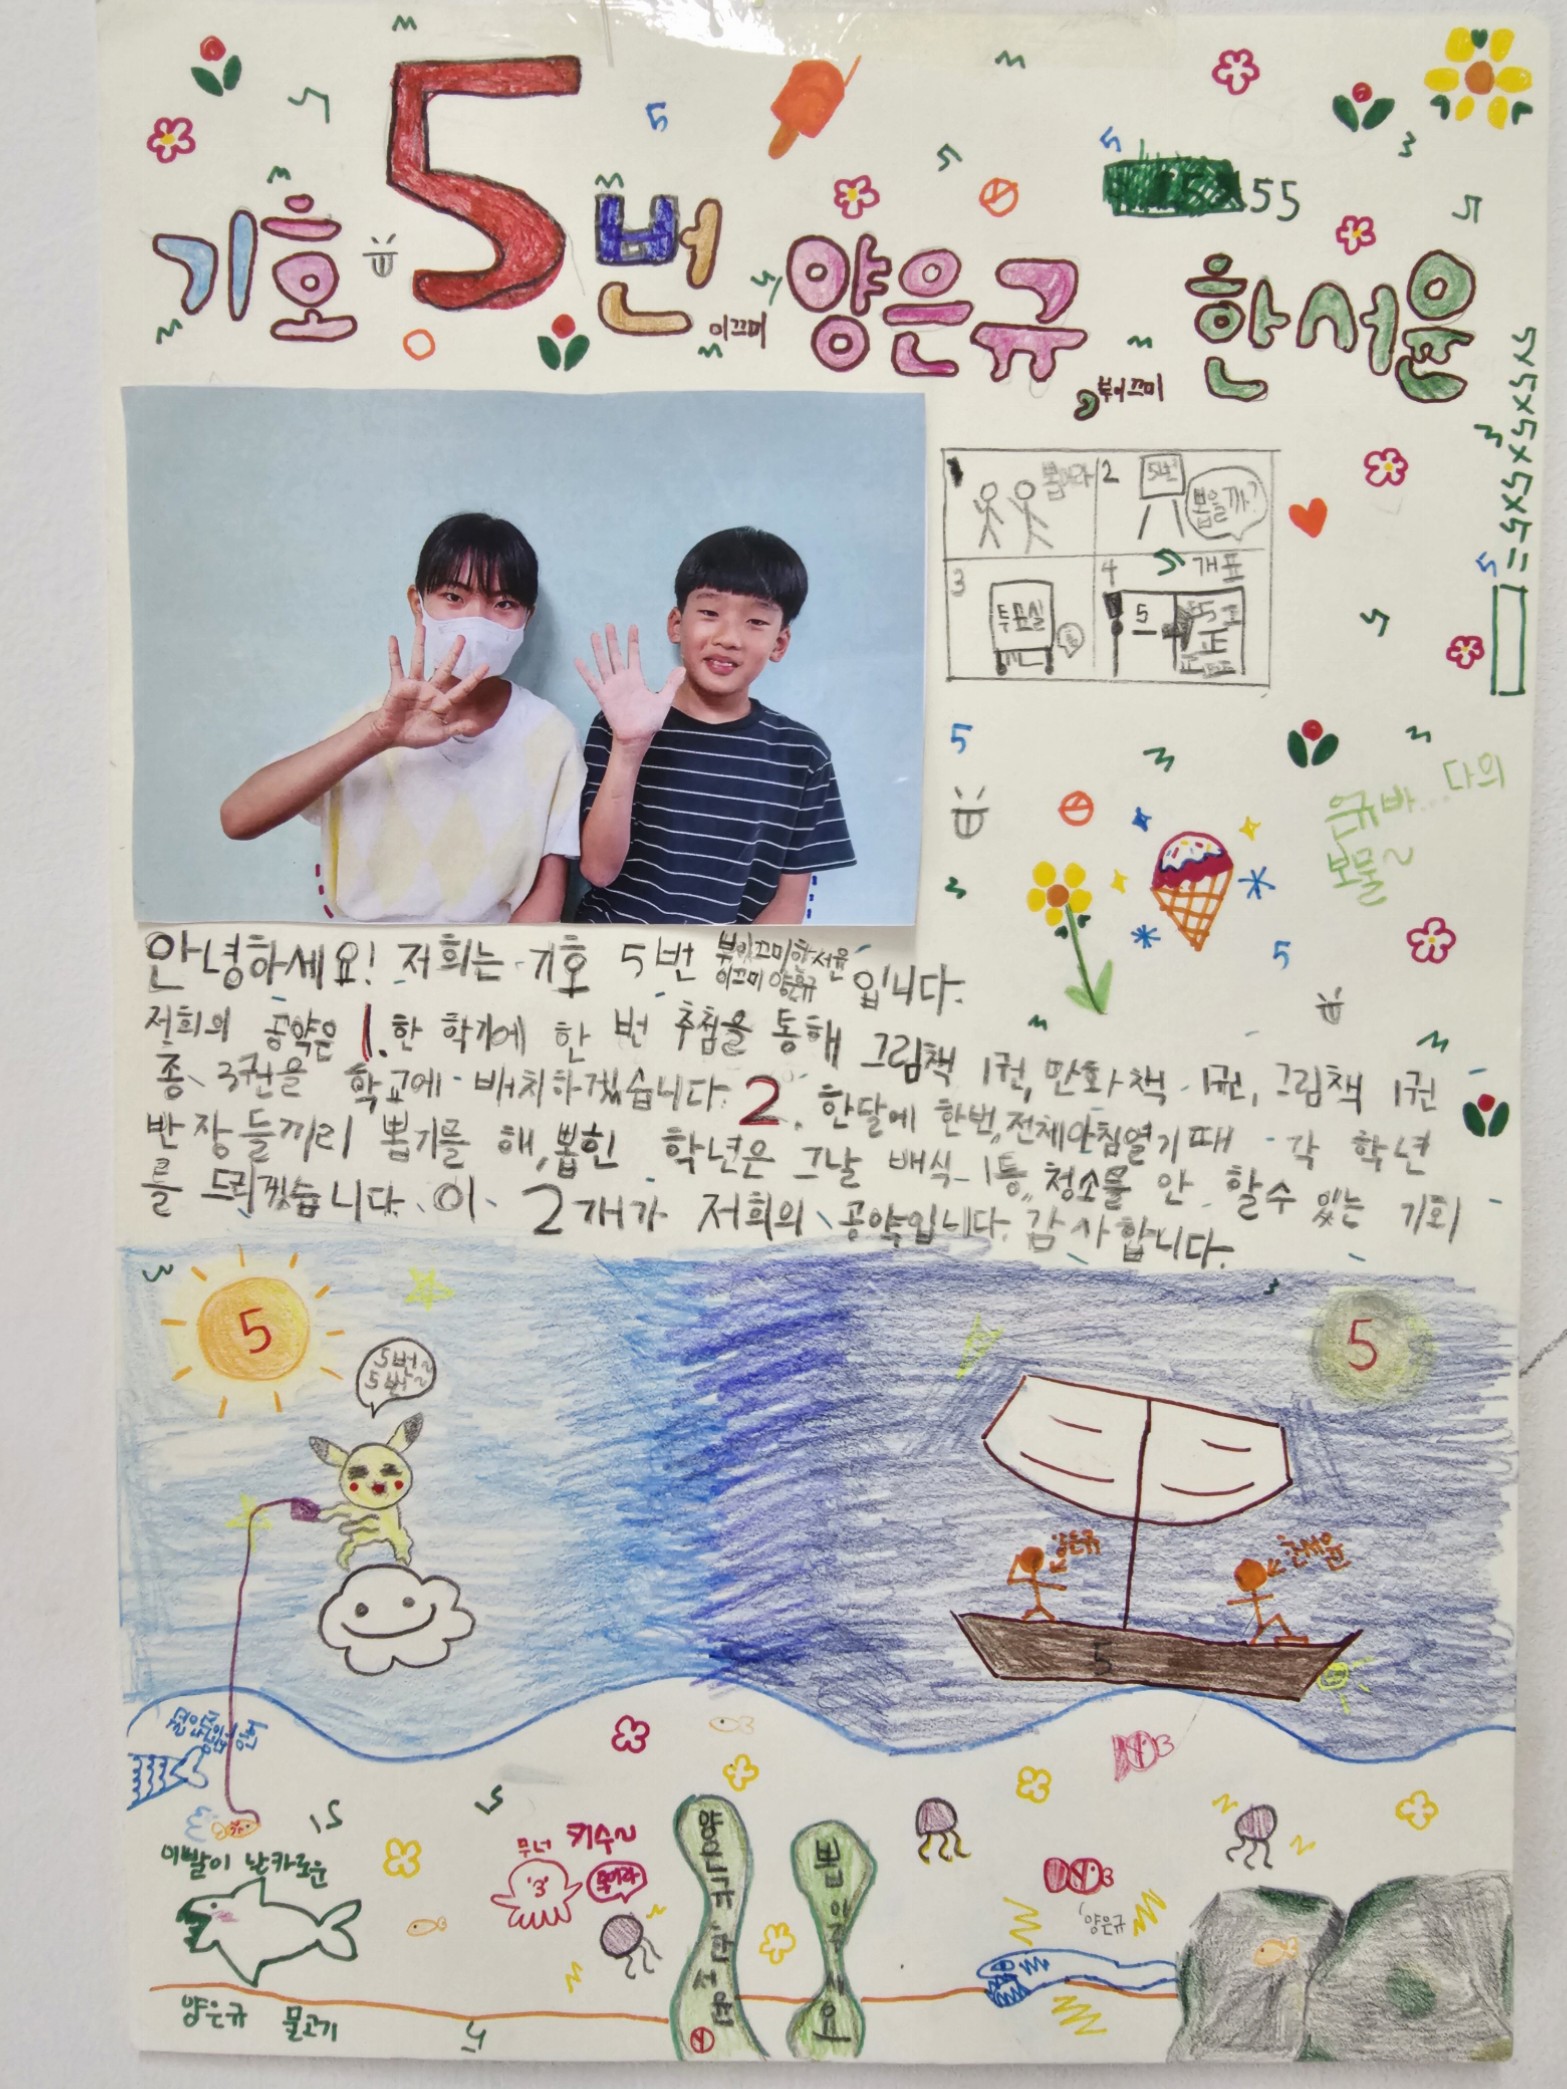 기호 5번
이끄미 양은규
부이끄미 한서윤
5x5x5x5x5=
1 뽑아라
2 5번 뽑을까?
3 투표실
4 개표
5
은규바...다의
보물~
안녕하세요! 저희는 기호 5번 부이끄미 한서윤 이끄미 양은규 입니다.
저희의 공약은 1. 한 학기에 한 번 추첨을 통해 그림책 1권, 만화책 1권, 그림책 1권
총 3권을 학교에 배치하겠습니다. 2. 한달에 한번, 전체아침열기 때 각 학년
반장들끼리 뽑기를 해, 뽑힌 학년은 그날 배식 1통, 청소를 안 할수 있는 기회
를 드리겠습니다. 이 2개가 저희의 공약입니다. 감사합니다.
5
5번~
5번~
5
양은규
한서윤
5
이빨이 날카로운
양은규 물고기
문너 키수~
양은규 한서윤
뽑아주세요
양은규